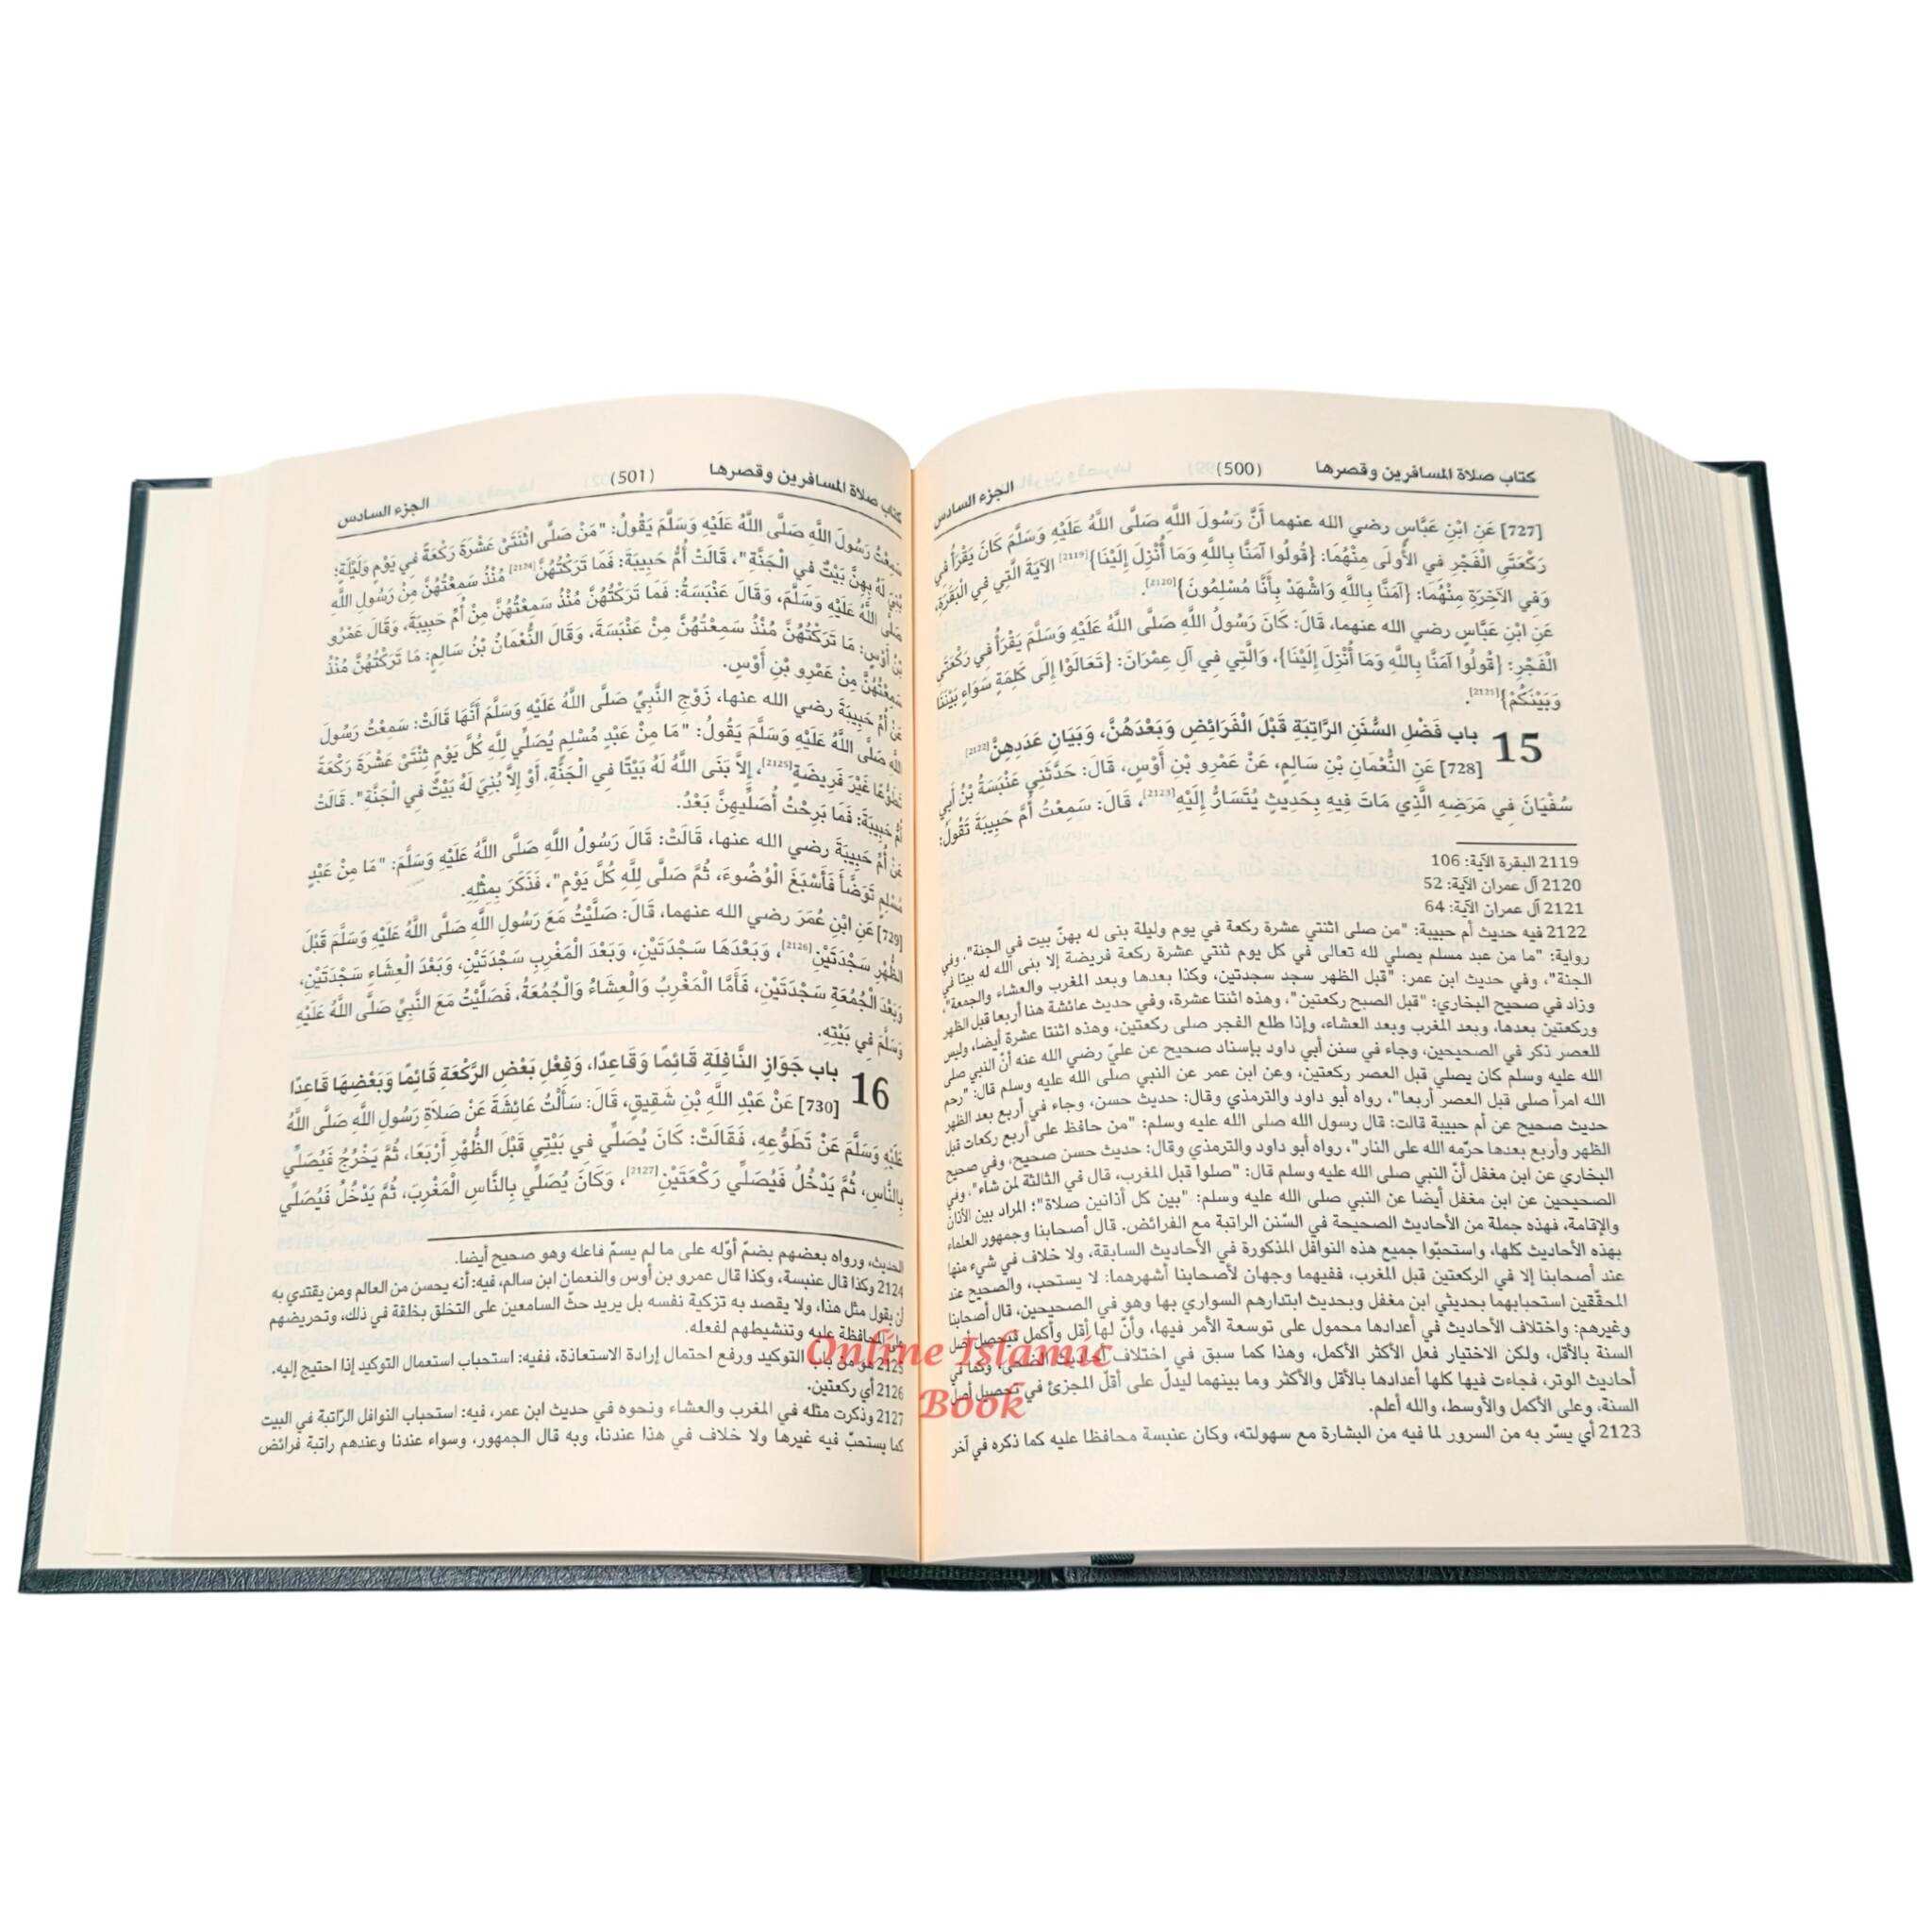 كتاب صلاة المسافرين وقصرها (500) الجزء السادس
[727] عَنِ ابْنِ عَبَّاسٍ رضي الله عنهما أَنَّ رَسُولَ اللَّهِ صَلَّى اللَّهُ عَلَيْهِ وَسَلَّمَ كَانَ يَقْرَأُ فِي
رَكْعَتَيِ الْفَجْرِ فِي الأُولَى مِنْهُمَا: {قُولُوا آمَنَّا بِاللَّهِ وَمَا أُنْزِلَ إِلَيْنَا}[2119] الآيَةَ الَّتِي فِي الْبَقَرَةِ،
وَفِي الآخِرَةِ مِنْهُمَا: {آمَنَّا بِاللَّهِ وَاشْهَدْ بِأَنَّا مُسْلِمُونَ}[2120].
عَنِ ابْنِ عَبَّاسٍ رضي الله عنهما، قَالَ: كَانَ رَسُولُ اللَّهِ صَلَّى اللَّهُ عَلَيْهِ وَسَلَّمَ يَقْرَأُ فِي رَكْعَتَيِ
الْفَجْرِ: {قُولُوا آمَنَّا بِاللَّهِ وَمَا أُنْزِلَ إِلَيْنَا}، وَالَّتِي فِي آلِ عِمْرَانَ: {تَعَالَوْا إِلَى كَلِمَةٍ سَوَاءٍ بَيْنَنَا
وَبَيْنَكُمْ}[2121].
15 باب فَضْلِ السُّنَنِ الرَّاتِبَةِ قَبْلَ الْفَرَائِضِ وَبَعْدَهُنَّ، وَبَيَانِ عَدَدِهِنَّ[2122]
[728] عَنِ النُّعْمَانِ بْنِ سَالِمٍ، عَنْ عَمْرِو بْنِ أَوْسٍ، قَالَ: حَدَّثَنِي عَنْبَسَةُ بْنُ أَبِي
سُفْيَانَ فِي مَرَضِهِ الَّذِي مَاتَ فِيهِ بِحَدِيثٍ يُتَسَارُّ إِلَيْهِ[2123]، قَالَ: سَمِعْتُ أُمَّ حَبِيبَةَ تَقُولُ:
2119 البقرة الآية: 106
2120 آل عمران الآية: 52
2121 آل عمران الآية: 64
2122 فيه حديث أم حبيبة: "من صلى اثنتي عشرة ركعة في يوم وليلة بنى له بهنّ بيت في الجنة". وفي
رواية: "ما من عبد مسلم يصلي لله تعالى في كل يوم ثنتي عشرة ركعة فريضة إلا بنى الله له بيتا في
الجنة"، وفي حديث ابن عمر: "قبل الظهر سجد سجدتين، وكذا بعدها وبعد المغرب والعشاء والجمعة"،
وزاد في صحيح البخاري: "قبل الصبح ركعتين"، وهذه اثنتا عشرة، وفي حديث عائشة هنا أربعا قبل الظهر
وركعتين بعدها، وبعد المغرب وبعد العشاء، وإذا طلع الفجر صلى ركعتين، وهذه اثنتا عشرة أيضا، وليس
للعصر ذكر في الصحيحين، وجاء في سنن أبي داود بإسناد صحيح عن عليّ رضي الله عنه أنّ النبي صلى
الله عليه وسلم كان يصلي قبل العصر ركعتين، وعن ابن عمر عن النبي صلى الله عليه وسلم قال: "رحم
الله امرأ صلى قبل العصر أربعا"، رواه أبو داود والترمذي وقال: حديث حسن، وجاء في أربع بعد الظهر
حديث صحيح عن أم حبيبة قالت: قال رسول الله صلى الله عليه وسلم: "من حافظ على أربع ركعات قبل
الظهر وأربع بعدها حرّمه الله على النار"، رواه أبو داود والترمذي وقال: حديث حسن صحيح، وفي صحيح
البخاري عن ابن مغفل أنّ النبي صلى الله عليه وسلم قال: "صلوا قبل المغرب، قال في الثالثة لمن شاء"، وفي
الصحيحين عن ابن مغفل أيضا عن النبي صلى الله عليه وسلم: "بين كل أذانين صلاة"؛ المراد بين الأذان
والإقامة، فهذه جملة من الأحاديث الصحيحة في السّنن الراتبة مع الفرائض. قال أصحابنا وجمهور العلماء
بهذه الأحاديث كلها، واستحبّوا جميع هذه النوافل المذكورة في الأحاديث السابقة، ولا خلاف في شيء منها
عند أصحابنا إلا في الركعتين قبل المغرب، ففيهما وجهان لأصحابنا أشهرهما: لا يستحب، والصحيح عند
المحقّقين استحبابهما بحديثي ابن مغفل وبحديث ابتدارهم السواري بها وهو في الصحيحين، قال أصحابنا
وغيرهم: واختلاف الأحاديث في أعدادها محمول على توسعة الأمر فيها، وأنّ لها أقل وأكمل فتحصل أصل
السنة بالأقل، ولكن الاختيار فعل الأكثر الأكمل، وهذا كما سبق في اختلاف أحاديث الضحى، وكما في
أحاديث الوتر، فجاءت فيها كلها أعدادها بالأقل والأكثر وما بينهما ليدلّ على أقلّ المجزئ في تحصيل أصل
السنة، وعلى الأكمل والأوسط، والله أعلم.
2123 أي يسّر به من السرور لما فيه من البشارة مع سهولته، وكان عنبسة محافظا عليه كما ذكره في آخر
كتاب صلاة المسافرين وقصرها (501) الجزء السادس
سَمِعْتُ رَسُولَ اللَّهِ صَلَّى اللَّهُ عَلَيْهِ وَسَلَّمَ يَقُولُ: "مَنْ صَلَّى اثْنَتَيْ عَشْرَةَ رَكْعَةً فِي يَوْمٍ وَلَيْلَةٍ؛
بُنِيَ لَهُ بِهِنَّ بَيْتٌ فِي الْجَنَّةِ"، قَالَتْ أُمُّ حَبِيبَةَ: فَمَا تَرَكْتُهُنَّ[2124] مُنْذُ سَمِعْتُهُنَّ مِنْ رَسُولِ اللَّهِ
صَلَّى اللَّهُ عَلَيْهِ وَسَلَّمَ، وَقَالَ عَنْبَسَةُ: فَمَا تَرَكْتُهُنَّ مُنْذُ سَمِعْتُهُنَّ مِنْ أُمِّ حَبِيبَةَ، وَقَالَ عَمْرُو
بْنُ أَوْسٍ: مَا تَرَكْتُهُنَّ مُنْذُ سَمِعْتُهُنَّ مِنْ عَنْبَسَةَ، وَقَالَ النُّعْمَانُ بْنُ سَالِمٍ: مَا تَرَكْتُهُنَّ مُنْذُ
سَمِعْتُهُنَّ مِنْ عَمْرِو بْنِ أَوْسٍ.
عَنْ أُمِّ حَبِيبَةَ رضي الله عنها، زَوْجِ النَّبِيِّ صَلَّى اللَّهُ عَلَيْهِ وَسَلَّمَ أَنَّهَا قَالَتْ: سَمِعْتُ رَسُولَ
اللَّهِ صَلَّى اللَّهُ عَلَيْهِ وَسَلَّمَ يَقُولُ: "مَا مِنْ عَبْدٍ مُسْلِمٍ يُصَلِّي لِلَّهِ كُلَّ يَوْمٍ ثِنْتَيْ عَشْرَةَ رَكْعَةً
تَطَوُّعًا غَيْرَ فَرِيضَةٍ[2125]، إِلاَّ بَنَى اللَّهُ لَهُ بَيْتًا فِي الْجَنَّةِ، أَوْ إِلاَّ بُنِيَ لَهُ بَيْتٌ فِي الْجَنَّةِ". قَالَتْ
أُمُّ حَبِيبَةَ: فَمَا بَرِحْتُ أُصَلِّيهِنَّ بَعْدُ.
عَنْ أُمِّ حَبِيبَةَ رضي الله عنها، قَالَتْ: قَالَ رَسُولُ اللَّهِ صَلَّى اللَّهُ عَلَيْهِ وَسَلَّمَ: "مَا مِنْ عَبْدٍ
مُسْلِمٍ تَوَضَّأَ فَأَسْبَغَ الْوُضُوءَ، ثُمَّ صَلَّى لِلَّهِ كُلَّ يَوْمٍ"، فَذَكَرَ بِمِثْلِهِ.
[729] عَنِ ابْنِ عُمَرَ رضي الله عنهما، قَالَ: صَلَّيْتُ مَعَ رَسُولِ اللَّهِ صَلَّى اللَّهُ عَلَيْهِ وَسَلَّمَ قَبْلَ
الظُّهْرِ سَجْدَتَيْنِ[2126]، وَبَعْدَهَا سَجْدَتَيْنِ، وَبَعْدَ الْمَغْرِبِ سَجْدَتَيْنِ، وَبَعْدَ الْعِشَاءِ سَجْدَتَيْنِ،
وَبَعْدَ الْجُمُعَةِ سَجْدَتَيْنِ، فَأَمَّا الْمَغْرِبُ وَالْعِشَاءُ وَالْجُمُعَةُ، فَصَلَّيْتُ مَعَ النَّبِيِّ صَلَّى اللَّهُ عَلَيْهِ
وَسَلَّمَ فِي بَيْتِهِ.
16 باب جَوَازِ النَّافِلَةِ قَائِمًا وَقَاعِدًا، وَفِعْلِ بَعْضِ الرَّكْعَةِ قَائِمًا وَبَعْضِهَا قَاعِدًا
[730] عَنْ عَبْدِ اللَّهِ بْنِ شَقِيقٍ، قَالَ: سَأَلْتُ عَائِشَةَ عَنْ صَلاَةِ رَسُولِ اللَّهِ صَلَّى اللَّهُ
عَلَيْهِ وَسَلَّمَ عَنْ تَطَوُّعِهِ، فَقَالَتْ: كَانَ يُصَلِّي فِي بَيْتِي قَبْلَ الظُّهْرِ أَرْبَعًا، ثُمَّ يَخْرُجُ فَيُصَلِّي
بِالنَّاسِ، ثُمَّ يَدْخُلُ فَيُصَلِّي رَكْعَتَيْنِ[2127]، وَكَانَ يُصَلِّي بِالنَّاسِ الْمَغْرِبَ، ثُمَّ يَدْخُلُ فَيُصَلِّي
الحديث، ورواه بعضهم بضمّ أوّله على ما لم يسمّ فاعله وهو صحيح أيضا.
2124 وكذا قال عنبسة، وكذا قال عمرو بن أوس والنعمان ابن سالم، فيه: أنه يحسن من العالم ومن يقتدي به
أن يقول مثل هذا، ولا يقصد به تزكية نفسه بل يريد حثّ السامعين على التخلق بخلقة في ذلك، وتحريضهم
على المحافظة عليه وتنشيطهم لفعله.
2125 هو من باب التوكيد ورفع احتمال إرادة الاستعاذة، ففيه: استحباب استعمال التوكيد إذا احتيج إليه.
2126 أي ركعتين.
2127 وذكرت مثله في المغرب والعشاء ونحوه في حديث ابن عمر، فيه: استحباب النوافل الرّاتبة في البيت
كما يستحبّ فيه غيرها ولا خلاف في هذا عندنا، وبه قال الجمهور، وسواء عندنا وعندهم راتبة فرائض
Online Islamic
Book